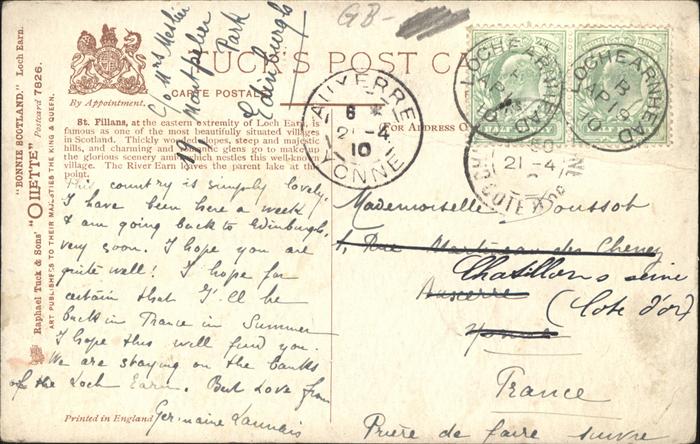 GB-
TUCK'S POST CA
CARTE POSTALE
By Appointment.
"BONNIE SCOTLAND." Loch Earn.
Raphael Tuck & Sons' "OILETTE" Postcard 7826.
ART PUBLISHERS TO THEIR MAJESTIES THE KING & QUEEN.
c/o Mrs
Montpelier
Park
Edinburgh
St. Fillans, at the eastern extremity of Loch Earn, is
famous as one of the most beautifully situated villages
in Scotland. Thickly wooded slopes, steep and majestic
hills, and charming and romantic glens go to make up
the glorious scenery amid which nestles this well-known
village. The River Earn leaves the parent lake at the
point.
This country is simply lovely.
I have been here a week
& am going back to Edinburgh,
very soon. I hope you are
quite well! I hope for
certain that I'll be
back in France in Summer
I hope this will find you.
We are staying on the banks
of the Loch Earn. Best Love from
Germaine
Printed in England
FOR ADDRESS O
AUXERRE
6 *
21 -4
10
YONNE
LOCHEARNHEAD
B
AP 19
10
LOCHEARNHEAD
B
AP 19
10
HALF
21 -4
Mademoiselle Joussot
1, Rue Martineau des Chesnez
Chatillon s seine
Auxerre
(Cote d'or)
Yonne
France
Prière de faire suivre